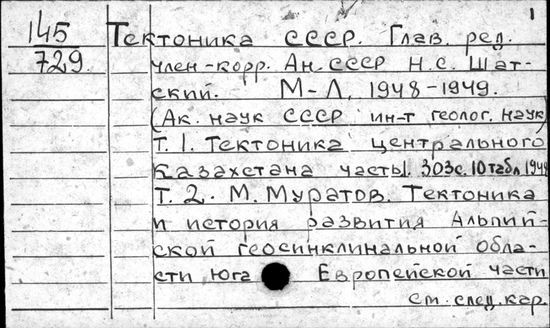 1
145
729.
Тектоника СССР. Глав. ред.
член-корр. Ан. СССР Н.С. Шат-
ский. М-Л, 1948-1949.
(Ак. наук СССР ин-т геолог. наук)
Т. 1. Тектоника центрального
Казахстана часть 1. 303с. 10 табл 1948
Т. 2. М. Муратов. Тектоника
и история развития Альпий-
ской геосинклинальной обла-
сти юга Европейской части
см. след. кар.